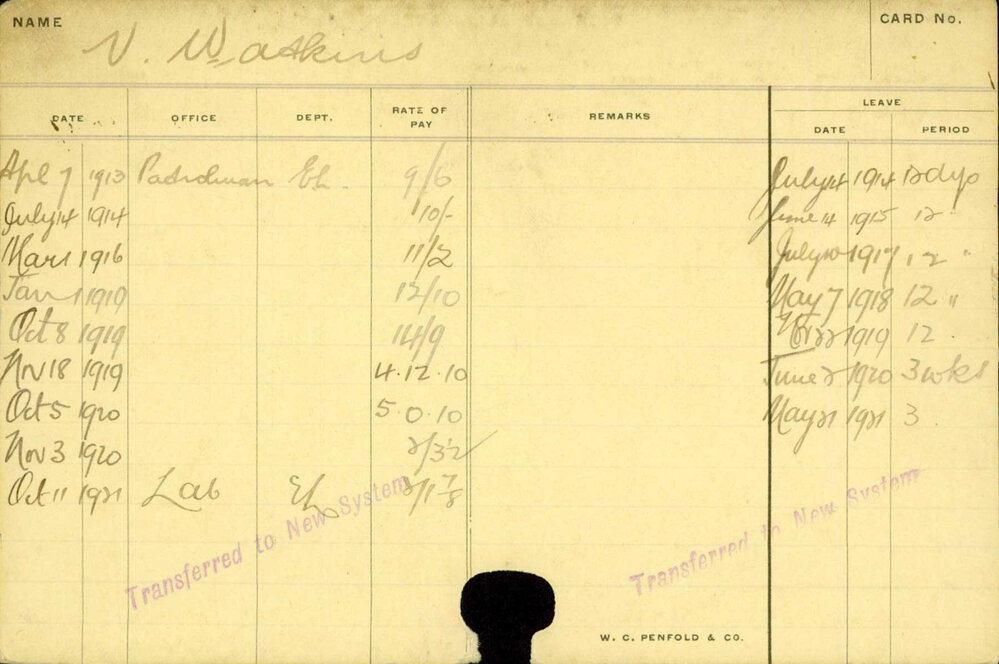 NAME V. Watkins CARD No.
LEAVE
DATE OFFICE DEPT. RATE OF PAY REMARKS DATE PERIOD
Apl 7 1913 EL. 9/6 July 14 1914 12 dys
July 14 1914 10/- June 14 1915 12 "
Mar 1 1916 11/2 July 10 1917 12 "
Jan 1 1919 12/10 May 7 1918 12 "
Oct 8 1919 14/9 1919 12
Nov 18 1919 4.12.10 June 2 1920 3 wks
Oct 5 1920 5.0.10 May 21 1921 3
Nov 3 1920 2/3½
Oct 11 1921 Lab EL 2/1⅞
Transferred to New System
Transferred to New System
W. C. PENFOLD & CO.